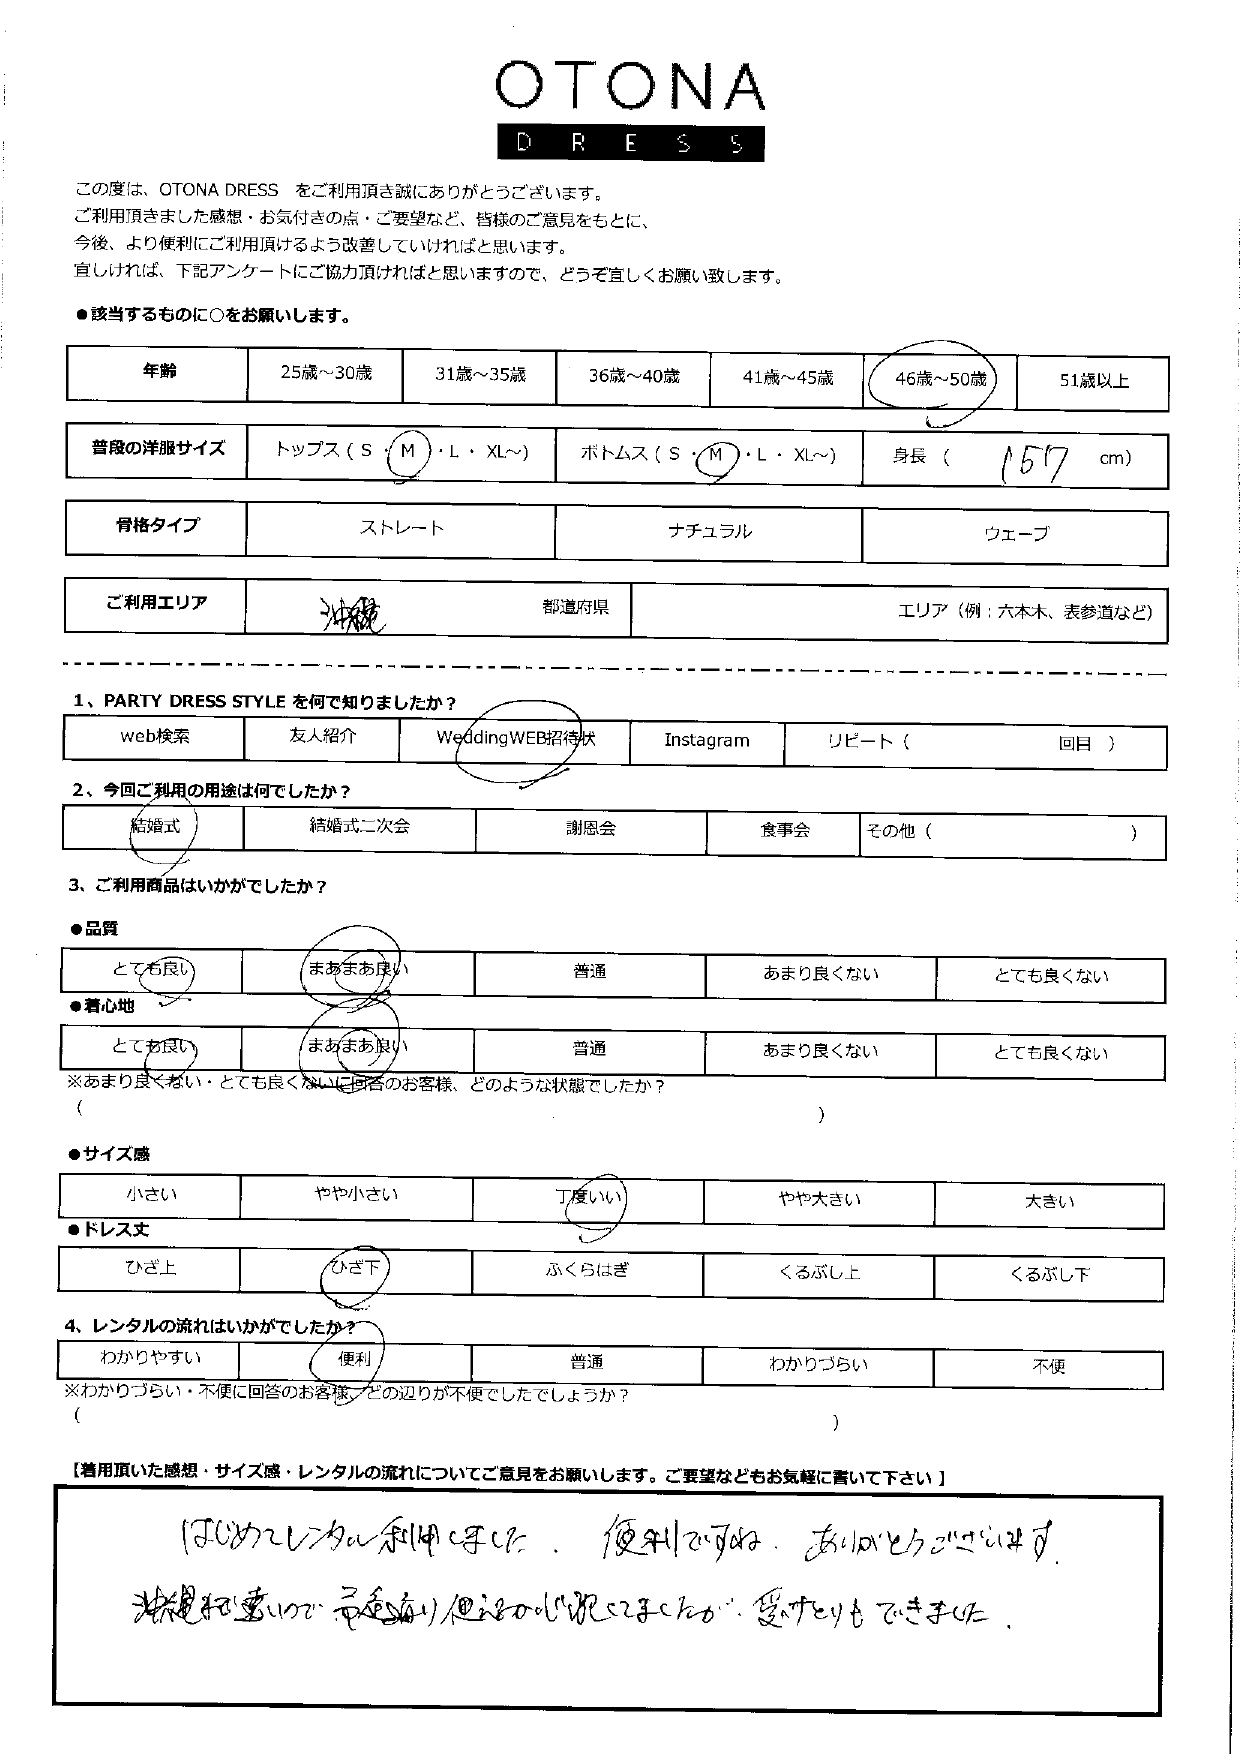 OTONA
DRESS
この度は、OTONA DRESS をご利用頂き誠にありがとうございます。
ご利用頂きました感想・お気付きの点・ご要望など、皆様のご意見をもとに、
今後、より便利にご利用頂けるよう改善していければと思います。
宜しければ、下記アンケートにご協力頂ければと思いますので、どうぞ宜しくお願い致します。
●該当するものに○をお願いします。
年齢 25歳～30歳 31歳～35歳 36歳～40歳 41歳～45歳 46歳～50歳 51歳以上
普段の洋服サイズ トップス ( S ・ M ・ L ・ XL～) ボトムス ( S ・ M ・ L ・ XL～) 身長 ( 157 cm)
骨格タイプ ストレート ナチュラル ウェーブ
ご利用エリア 沖縄 都道府県 エリア（例：六本木、表参道など）
1、PARTY DRESS STYLE を何で知りましたか？
web検索 友人紹介 WeddingWEB招待状 Instagram リピート（ 回目 ）
2、今回ご利用の用途は何でしたか？
結婚式 結婚式二次会 謝恩会 食事会 その他（ ）
3、ご利用商品はいかがでしたか？
●品質
とても良い まあまあ良い 普通 あまり良くない とても良くない
●着心地
とても良い まあまあ良い 普通 あまり良くない とても良くない
※あまり良くない・とても良くないに回答のお客様、どのような状態でしたか？
（ ）
●サイズ感
小さい やや小さい 丁度いい やや大きい 大きい
●ドレス丈
ひざ上 ひざ下 ふくらはぎ くるぶし上 くるぶし下
4、レンタルの流れはいかがでしたか？
わかりやすい 便利 普通 わかりづらい 不便
※わかりづらい・不便に回答のお客様、どの辺りが不便でしたでしょうか？
（ ）
【着用頂いた感想・サイズ感・レンタルの流れについてご意見をお願いします。ご要望などもお気軽に書いて下さい 】
はじめてレンタル利用しました. 便利ですね. ありがとうございます.
沖縄まで遠いので 予定通り 心配してましたが、受けとりもできました.